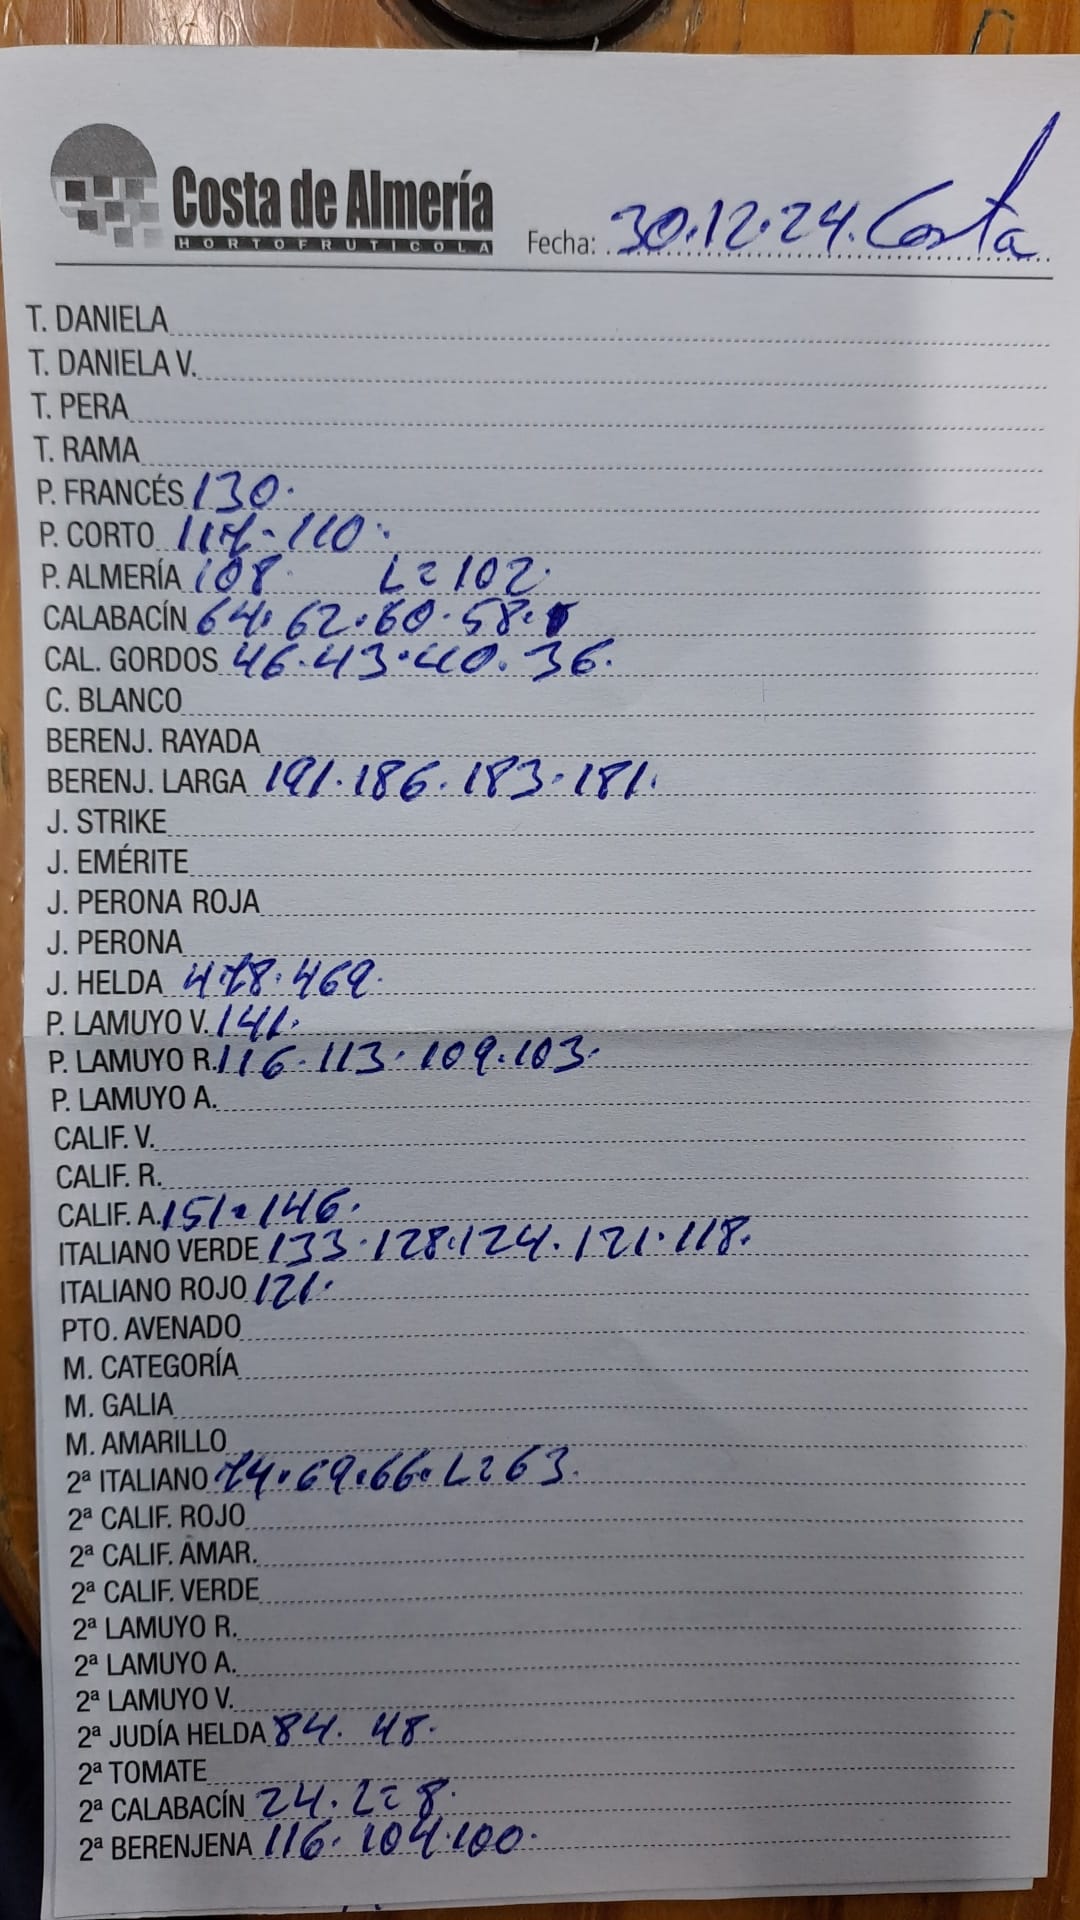 Costa de Almería
HORTOFRUTICOLA
Fecha: 30.12.24. Costa
T. DANIELA
T. DANIELA V.
T. PERA
T. RAMA
P. FRANCÉS 130.
P. CORTO 117-110.
P. ALMERÍA 108. L=102.
CALABACÍN 64. 62.60.58.
CAL. GORDOS 46.43.40.36.
C. BLANCO
BERENJ. RAYADA
BERENJ. LARGA 191.186.183.181.
J. STRIKE
J. EMÉRITE
J. PERONA ROJA
J. PERONA
J. HELDA 478.469.
P. LAMUYO V. 141.
P. LAMUYO R. 116.113.109.103.
P. LAMUYO A.
CALIF. V.
CALIF. R.
CALIF. A. 151.146.
ITALIANO VERDE 133.128.124.121.118.
ITALIANO ROJO 121.
PTO. AVENADO
M. CATEGORÍA
M. GALIA
M. AMARILLO
2ª ITALIANO 74.69.66.L=63.
2ª CALIF. ROJO
2ª CALIF. AMAR.
2ª CALIF. VERDE
2ª LAMUYO R.
2ª LAMUYO A.
2ª LAMUYO V.
2ª JUDÍA HELDA 84. 48.
2ª TOMATE
2ª CALABACÍN 24. L=8.
2ª BERENJENA 116. 104.100.